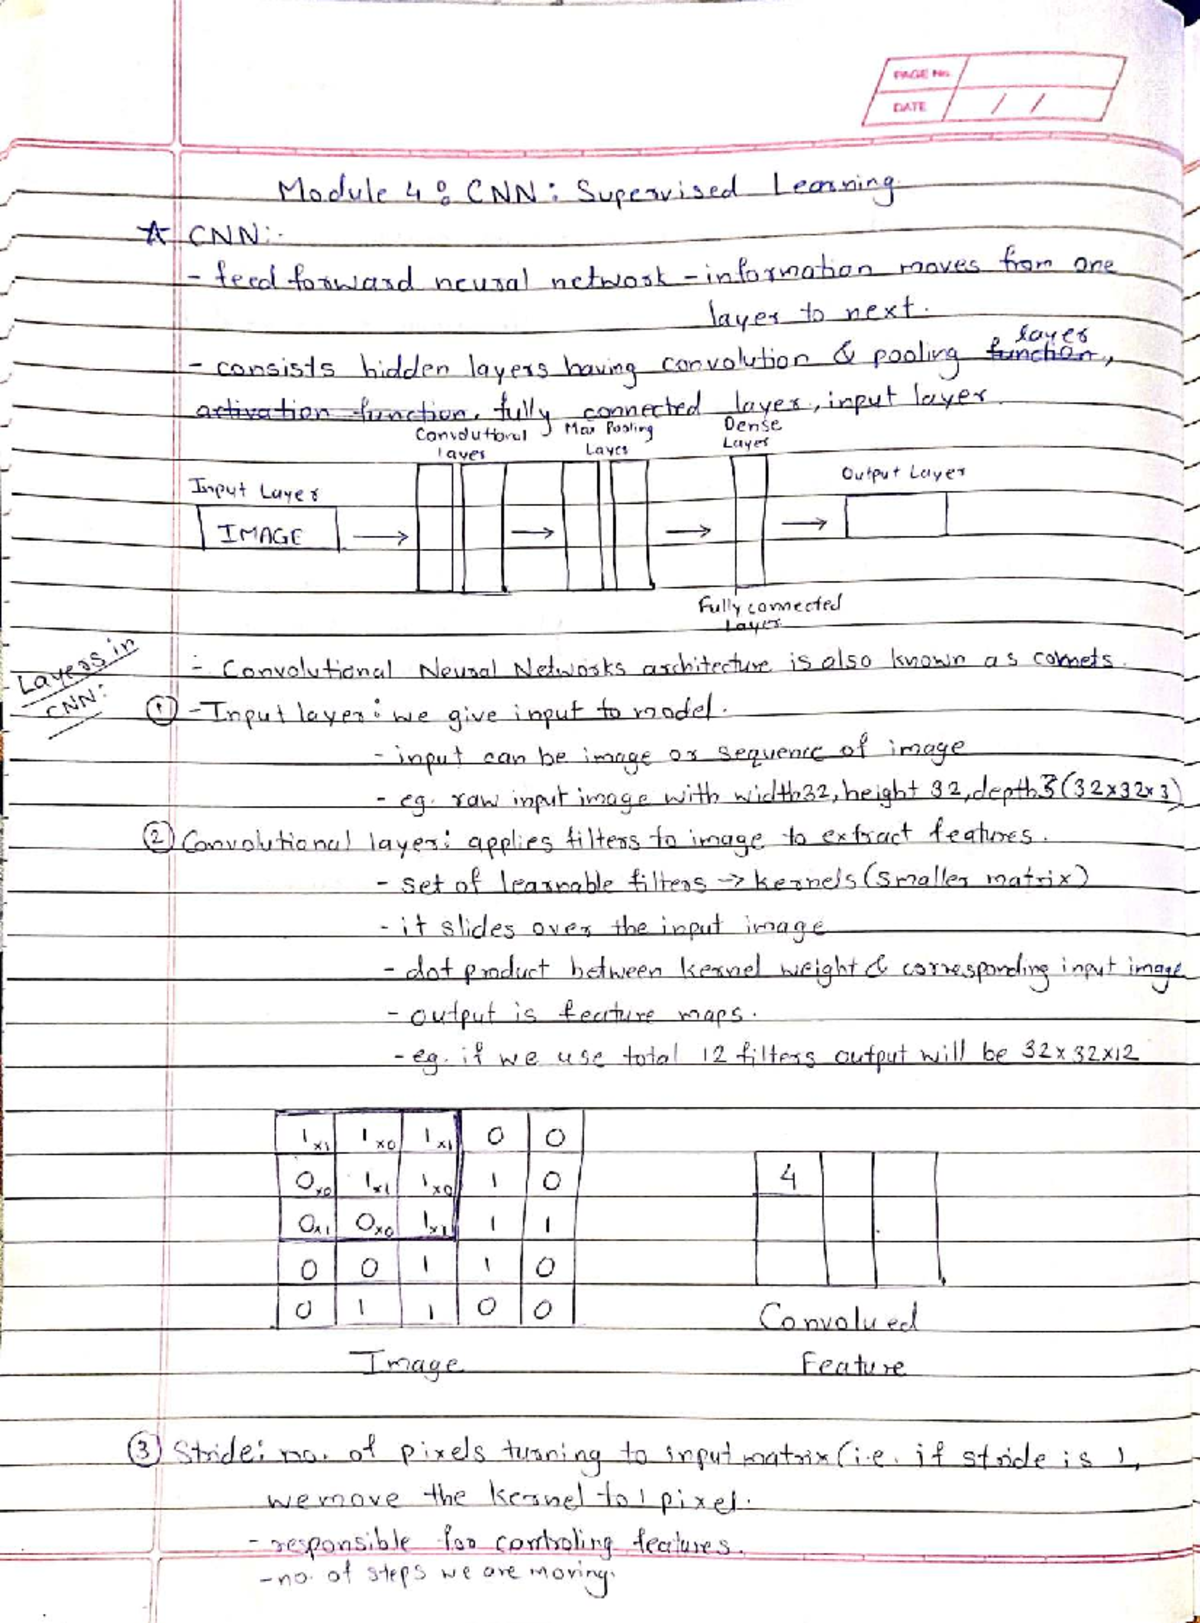 PAGE No.
DATE / /
Module 4 : CNN : Supervised Learning
☆ CNN :-
- feed forward neural network - information moves from one
layer to next.
layer
- consists hidden layers having convolution & pooling function,
activation function, fully connected layer, input layer.
Convolutional Layer
Max Pooling Layer
Dense Layer
Input Layer
Output Layer
IMAGE → → → →
Fully connected Layer
- Convolutional Neural Networks architecture is also known as convnets.
Layers in CNN:
① - Input layer : we give input to model.
- input can be image or sequence of image
- eg. raw input image with width 32, height 32, depth 3 (32x32x3)
② Convolutional layer : applies filters to image to extract features.
- set of learnable filters → kernels (smaller matrix)
- it slides over the input image
- dot product between kernel weight & corresponding input image
- output is feature maps.
- eg. if we use total 12 filters output will be 32x32x12
1x1 1x0 1x1 0 0
0x0 1x1 1x0 1 0
0x1 0x0 1x1 1 1
0 0 1 1 0
0 1 1 0 0
4
Image
Convolued
Feature
③ Stride : no. of pixels turning to input matrix (i.e. if stride is 1,
we move the kernel to 1 pixel.
- responsible for controling features.
- no. of steps we are moving.